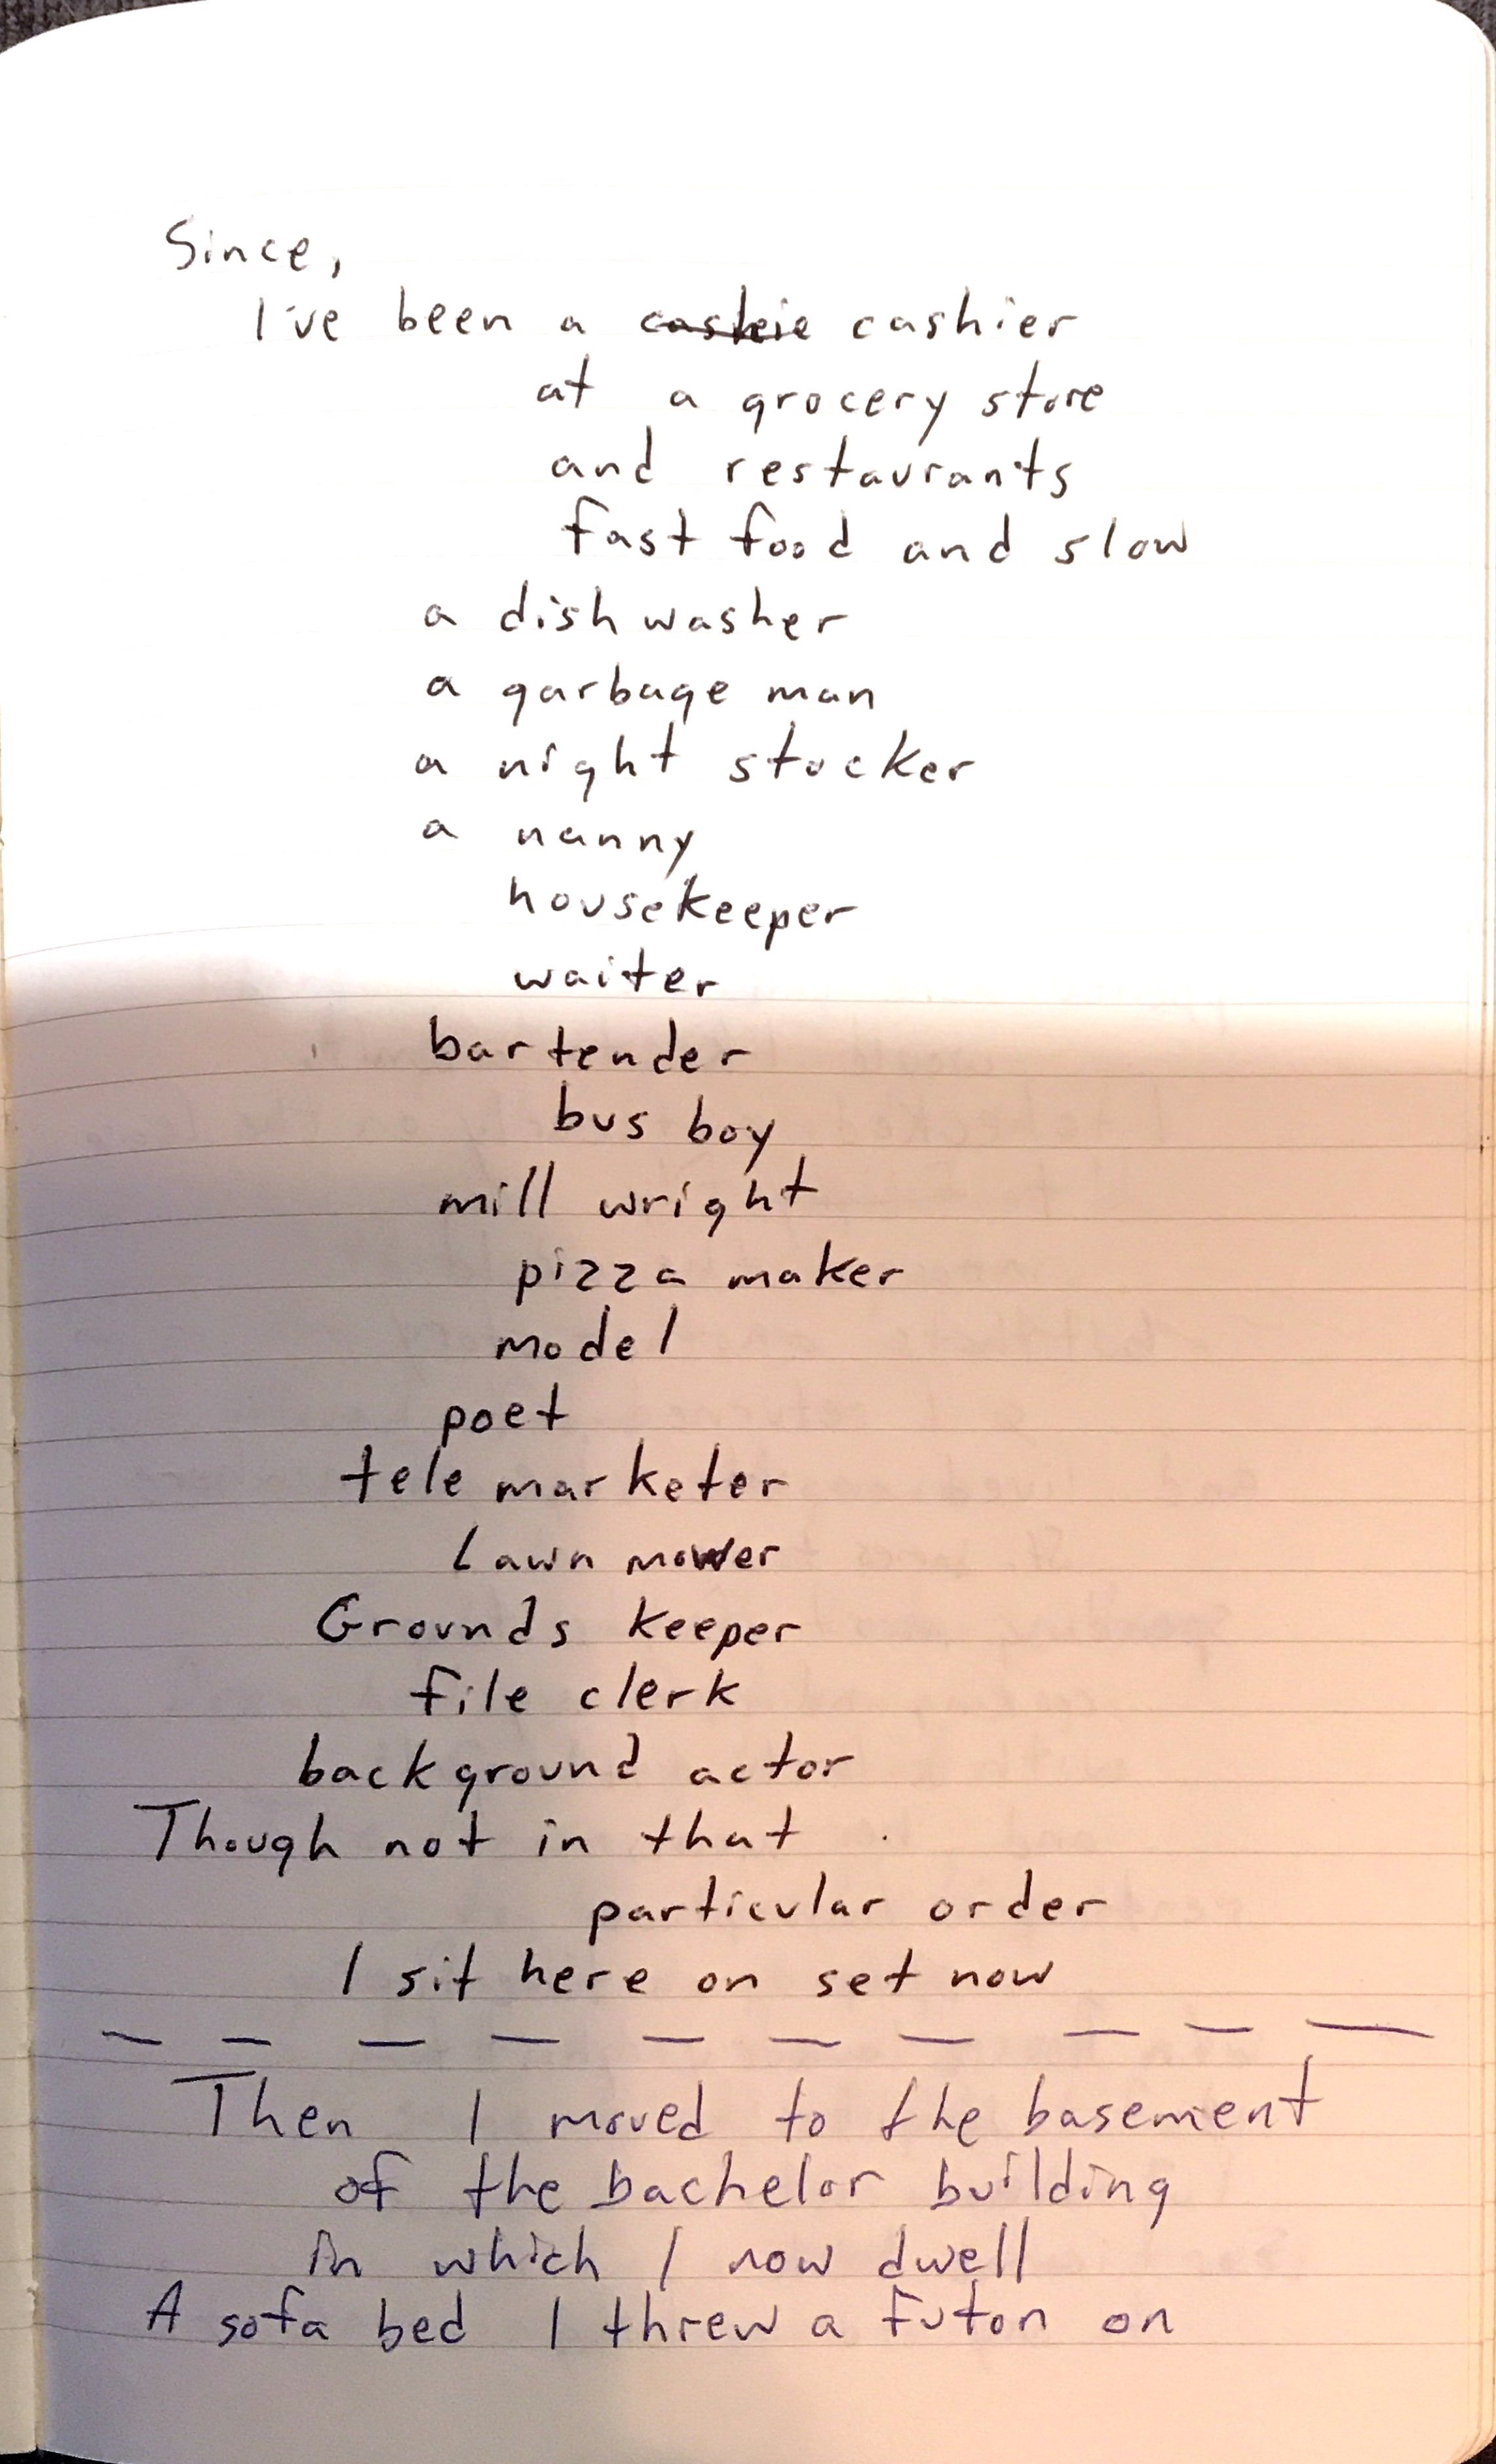 Since,
I've been a cashie cashier
at a grocery store
and restaurants
fast food and slow
a dishwasher
a garbage man
a night stocker
a nanny
housekeeper
waiter
bartender
bus boy
mill wright
pizza maker
model
poet
tele marketer
Lawn mower
Grounds keeper
file clerk
background actor
Though not in that
particular order
I sit here on set now
— — — — — — — — — —
Then I moved to the basement
of the bachelor building
in which I now dwell
A sofa bed I threw a futon on